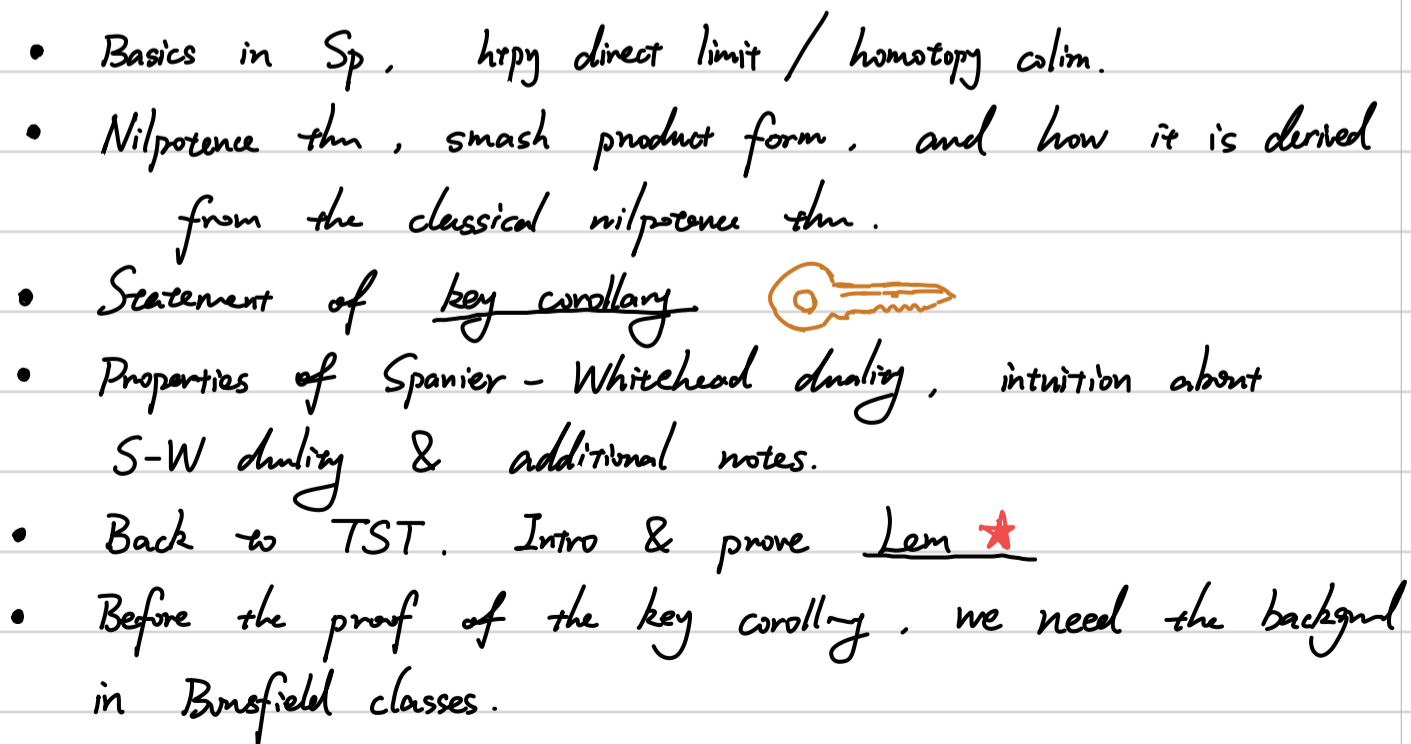 • Basics in Sp, htpy direct limit / homotopy colim.
• Nilpotence thm, smash product form, and how it is derived
from the classical nilpotence thm.
• Statement of key corollary
• Properties of Spanier - Whitehead duality, intuition about
S-W duality & additional notes.
• Back to TST. Intro & prove Lem ★
• Before the proof of the key corollary, we need the backgrnd
in Bousfield classes.